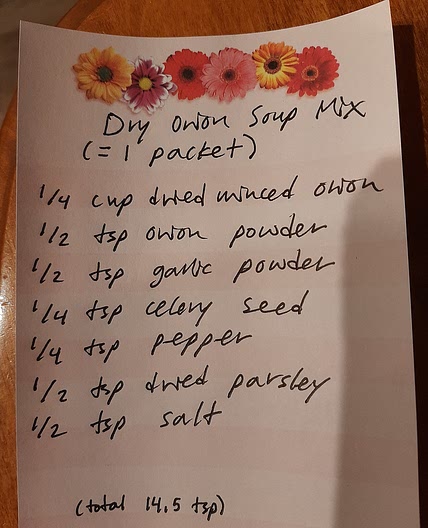 Dry onion Soup Mix
(= 1 packet)
1/4 cup dried minced onion
1/2 tsp onion powder
1/2 tsp garlic powder
1/4 tsp celery seed
1/4 tsp pepper
1/2 tsp dried parsley
1/2 tsp salt
(total 14.5 tsp)